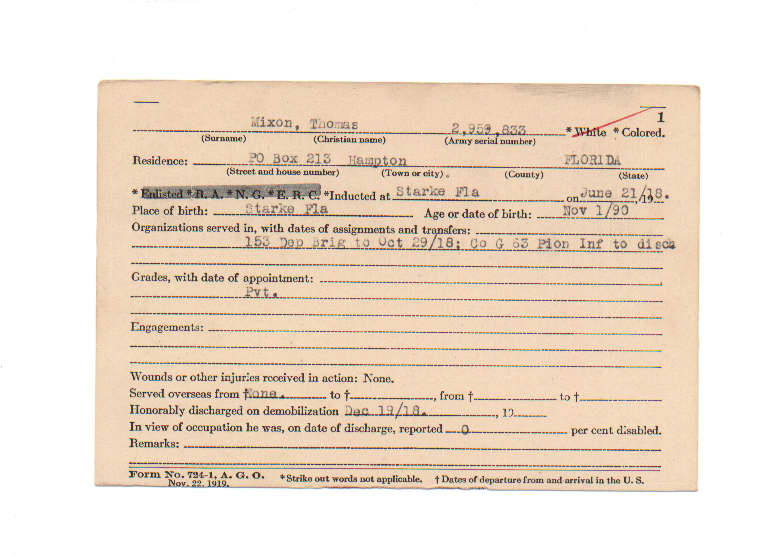 1
Mixon, Thomas 2,959,833 *White *Colored.
(Surname) (Christian name) (Army serial number)
Residence: PO Box 213 Hampton FLORIDA
(Street and house number) (Town or city) (County) (State)
*Enlisted *R. A. *N. G. *E. R. C. *Inducted at Starke Fla on June 21/18. , 19
Place of birth: Starke Fla Age or date of birth: Nov 1/90
Organizations served in, with dates of assignments and transfers:
153 Dep Brig to Oct 29/18; Co G 63 Pion Inf to disch
Grades, with date of appointment:
Pvt.
Engagements:
Wounds or other injuries received in action: None.
Served overseas from †None. to †, from † to †
Honorably discharged on demobilization Dec 19/18. , 19
In view of occupation he was, on date of discharge, reported 0 per cent disabled.
Remarks:
Form No. 724-1, A. G. O. *Strike out words not applicable. † Dates of departure from and arrival in the U. S.
Nov. 22, 1919.